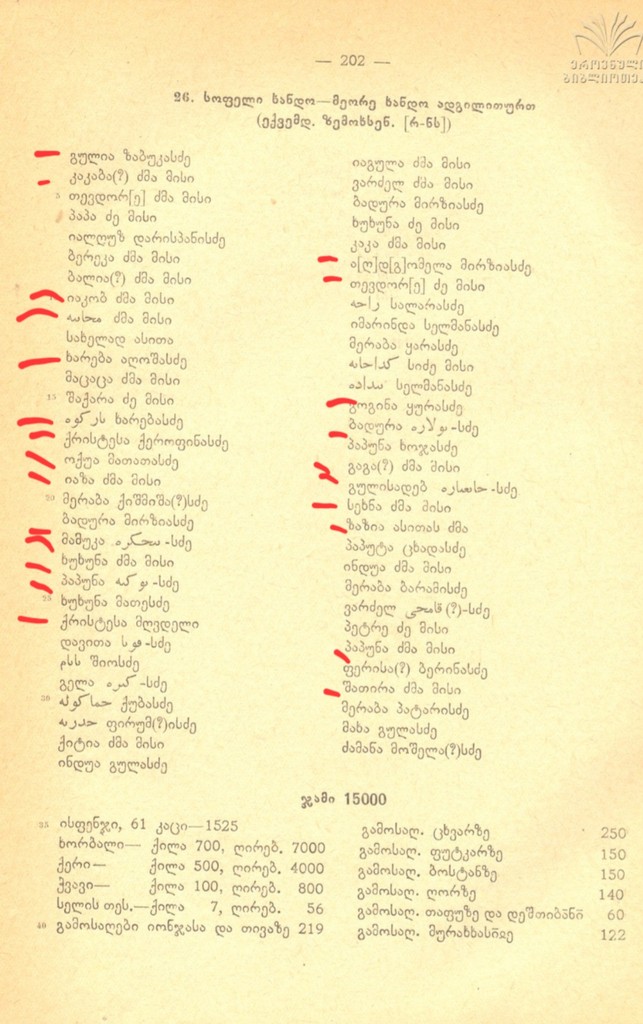 — 202 —
ეროვნული
ბიბლიოთეკა
26. სოფელი ხანდო—მეორე ხანდო ადგილითურთ
(ექვემდ. ზემოხსენ. [რ-ნს])
გულია ზაბუკასძე
კაკაბა(?) ძმა მისი
5 თევდორ[ე] ძმა მისი
პაპა ძე მისი
იალღუზ დარისპანისძე
ბერეკა ძმა მისი
ბალია(?) ძმა მისი
იაკობ ძმა მისი
ძმა მისი
სახელად ასითა
ხარება აღოშასძე
მაცაცა ძმა მისი
15 შაქარა ძე მისი
ხარებასძე
ქრისტესა ქეროფინასძე
ოქუა მათათასძე
იაზა ძმა მისი
20 მერაბა ქიშმიშა(?)სძე
ბადურა მირზიასძე
მამუკა -სძე
ხუხუნა ძმა მისი
პაპუნა -სძე
25 ხუხუნა მათესძე
ქრისტესა მღვდელი
დავითა -სძე
შიოსძე
გელა -სძე
30 ქუბასძე
ფირუმ(?)ისძე
ქიტია ძმა მისი
ინდუა გულასძე
იაგულა ძმა მისი
ვარძელ ძმა მისი
ბადურა მირზიასძე
ხუხუნა ძე მისი
კაკა ძმა მისი
ა[ღ]დ[გ]ომელა მირზიასძე
თევდორ[ე] ძე მისი
راحه სალარასძე
იმარინდა სელმანასძე
მერაბა ყარასძე
სიძე მისი
სელმანასძე
გოგინა ყურასძე
ბადურა -სძე
პაპუნა ხოჯასძე
გაგა(?) ძმა მისი
გულისადებ -სძე
სეხნა ძმა მისი
ზაზია ასითას ძმა
პაპუტა ცხადასძე
ინდუა ძმა მისი
მერაბა ბარამისძე
ვარძელ قامحى (?)-სძე
პეტრე ძე მისი
პაპუნა ძმა მისი
ფერისა(?) ბერინასძე
შათირა ძმა მისი
მერაბა პატარისძე
მახა გულასძე
ძამანა მოშელა(?)სძე
ჯამი 15000
35 ისფენჯი, 61 კაცი—1525
ხორბალი— ქილა 700, ღირებ. 7000
ქერი— ქილა 500, ღირებ. 4000
ქვავი— ქილა 100, ღირებ. 800
სელის თეს.—ქილა 7, ღირებ. 56
40 გამოსაღები იონჯასა და თივაზე 219
გამოსაღ. ცხვარზე 250
გამოსაღ. ფუტკარზე 150
გამოსაღ. ბოსტანზე 150
გამოსაღ. ღორზე 140
გამოსაღ. თაფუზე და 60
გამოსაღ. 122